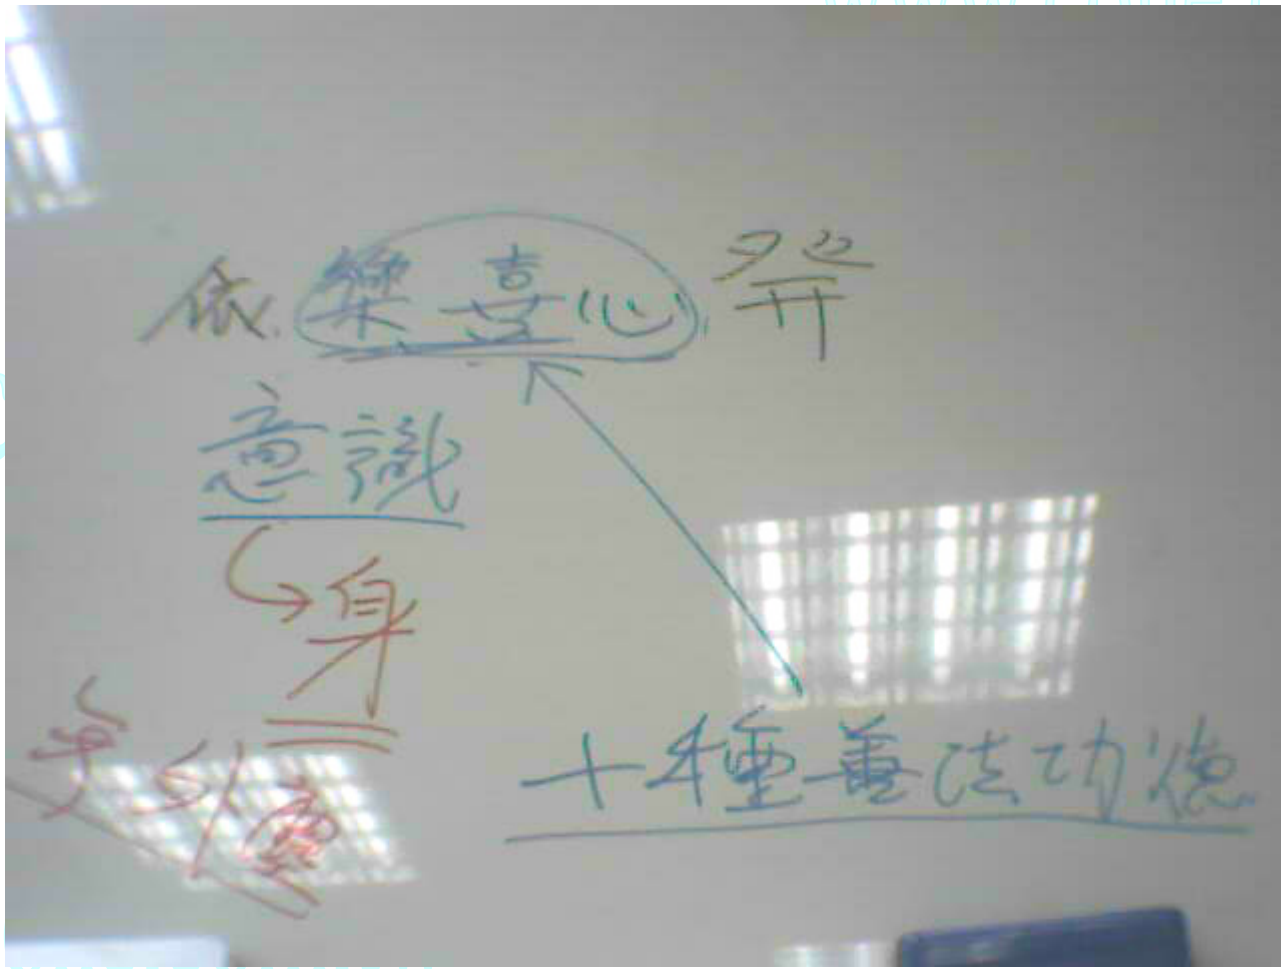 依樂喜心發
意識
身
引
十種善法功德